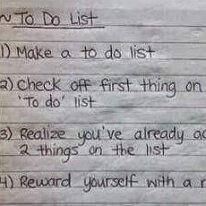 ~ To Do List
1) Make a to do list
2) Check off first thing on
'To do' list
3) Realize you've already
2 things on the list
4) Reward yourself with a